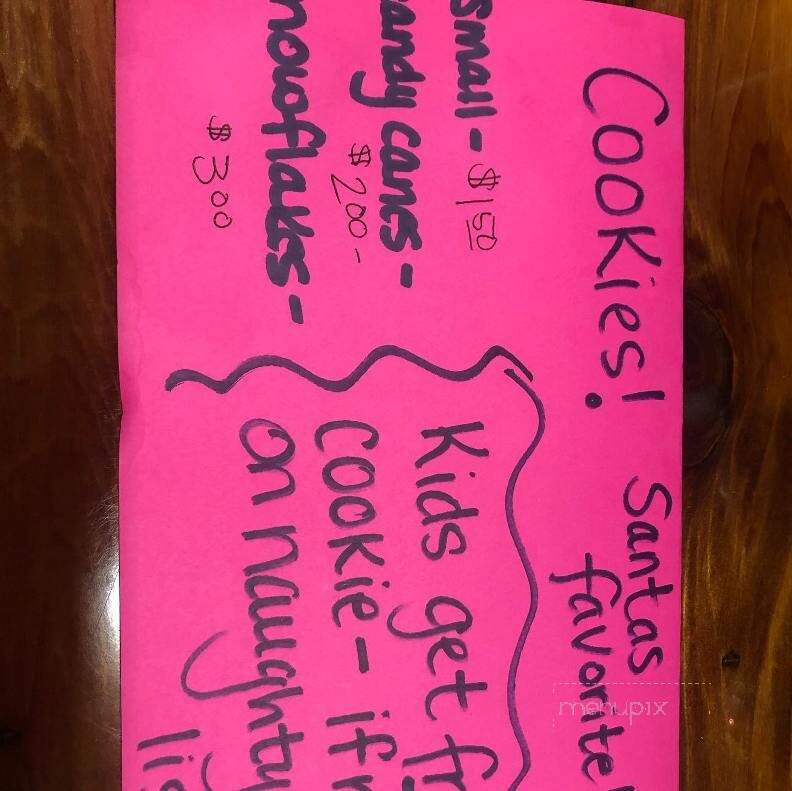 Cookies! Santas
favorite!
small - $1.50
andy canes -
$2.00 -
nowflakes -
$3.00
Kids get fr
cookie - if n
on naughty
lis
menupix